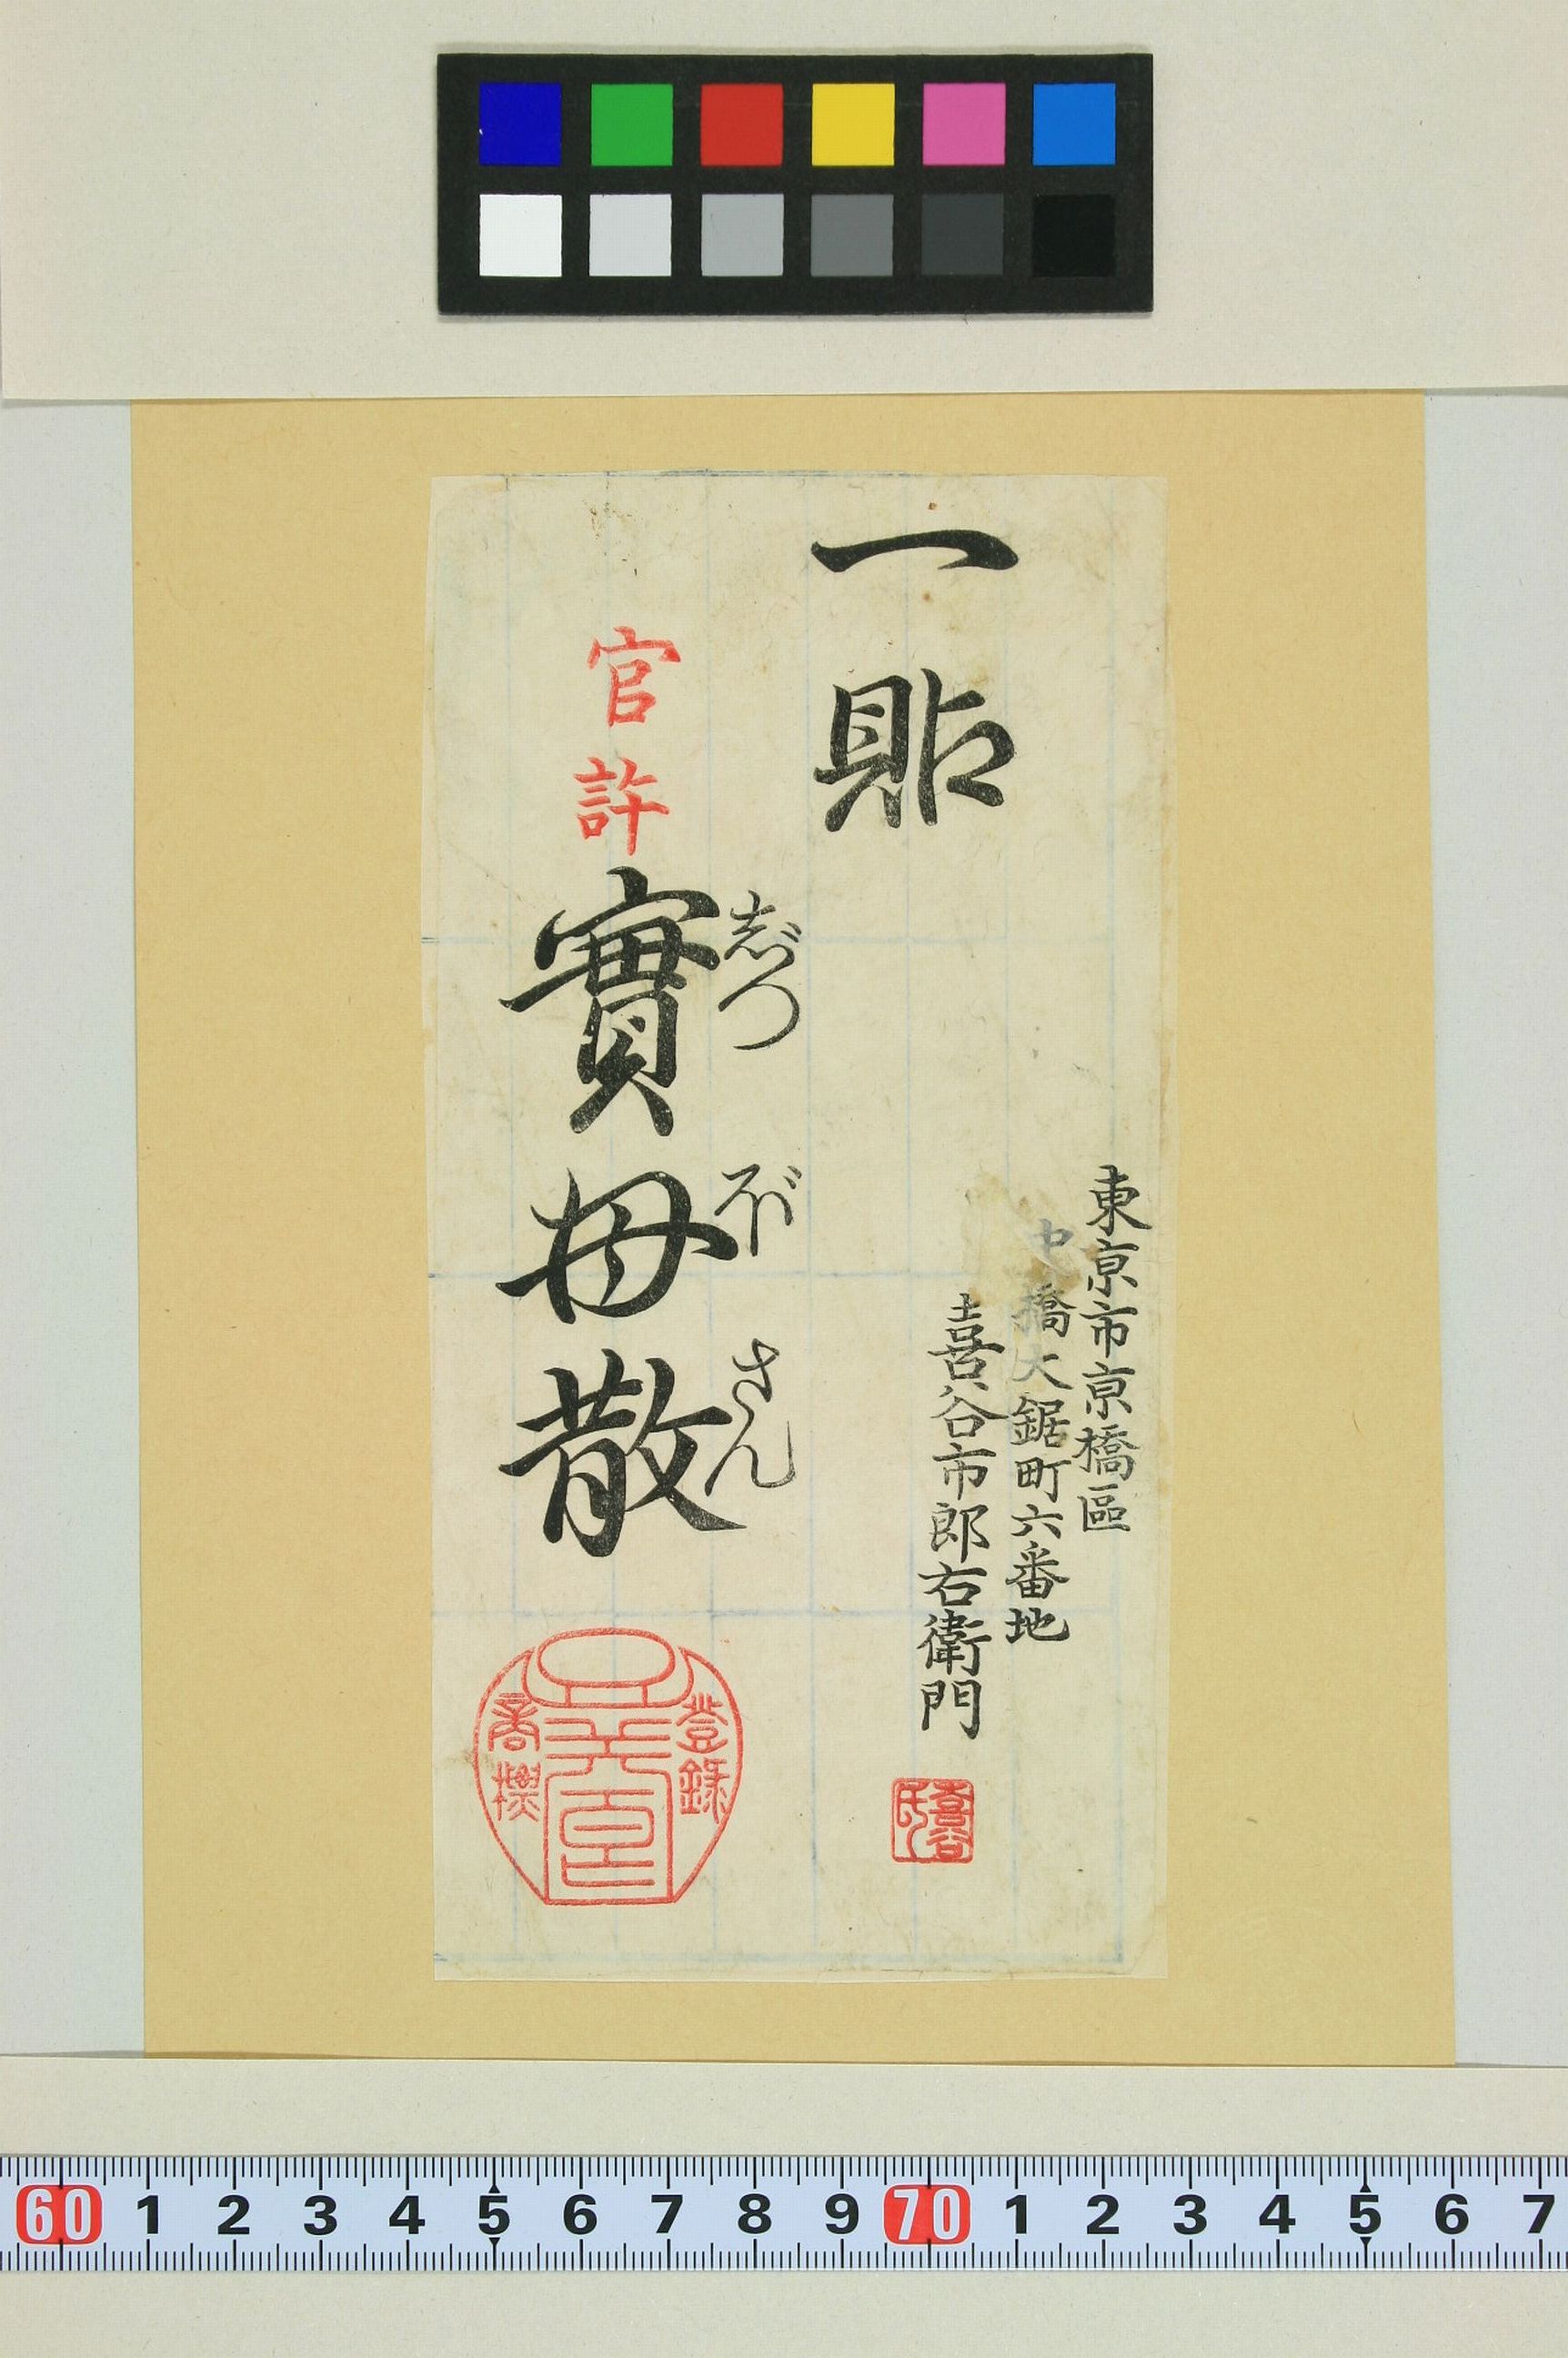 東京市京橋區
中橋大鋸町六番地
喜谷市郎右衛門
喜谷氏
一貼
官許
實母散
じつぼさん
登録
商標
60 1 2 3 4 5 6 7 8 9 70 1 2 3 4 5 6 7